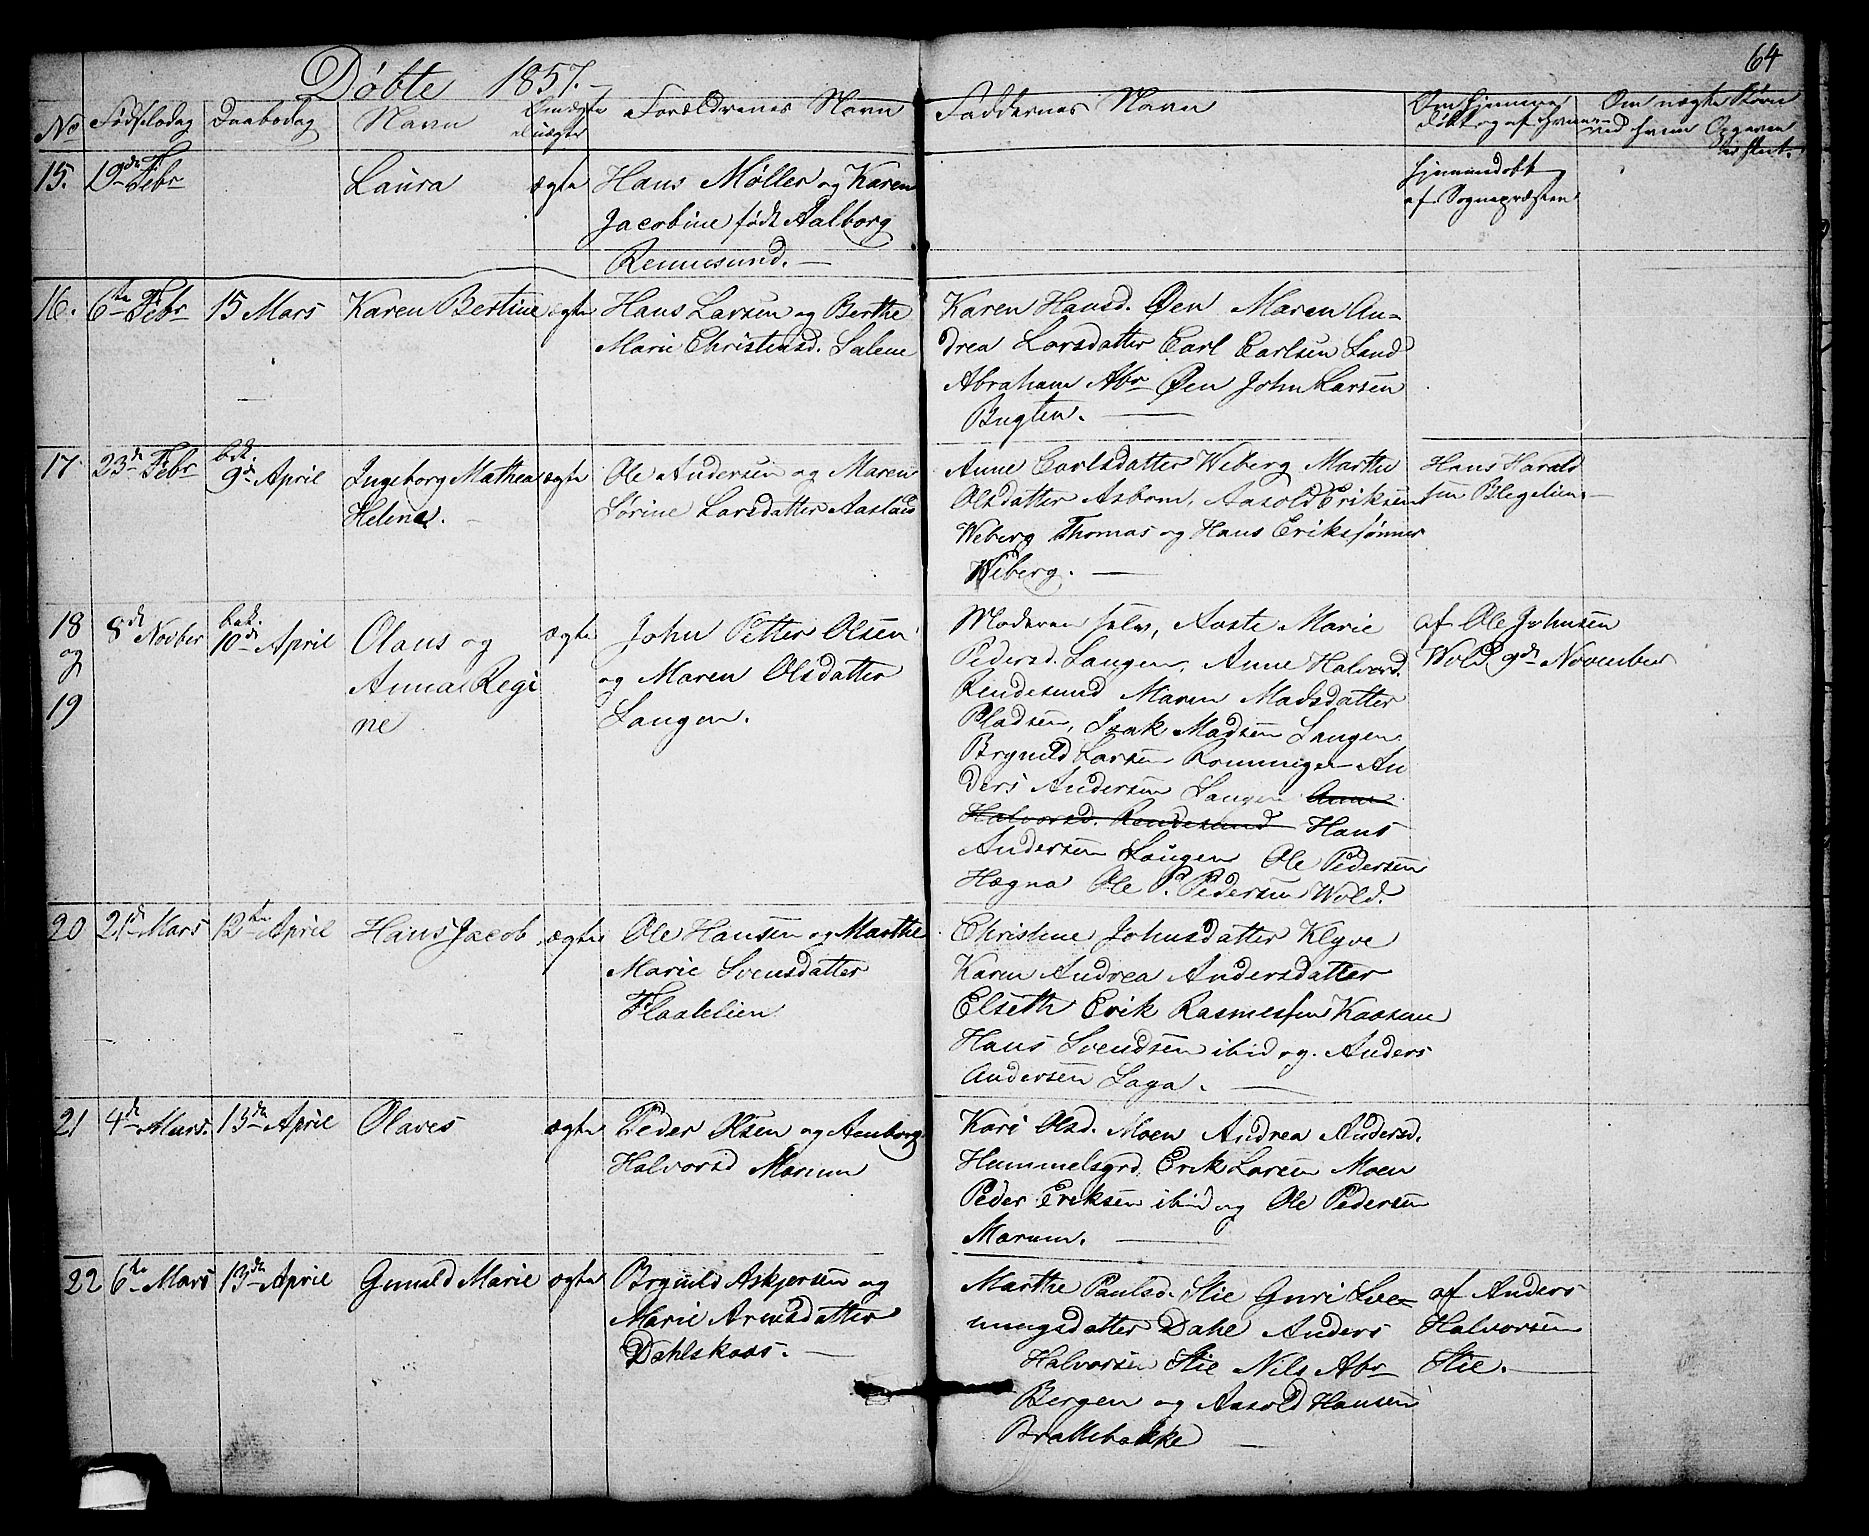 64
Døbte 1857.
No Fødselsdag Daabsdag Navn Om ægte el uægte Forældrenes Navn Faddernes Navn Om hjemmedøbt og af hvem Om uægte Børn ved hvem Opgaven er skeet.
15. 19de Febr Laura ægte Hans Møller og Karen
Jacobine født Aalborg
Rennesund.
hjemmedøbt
af Sognepræsten
16. 6te Febr 15 Mars Karen Bertine ægte Hans Larsen og Berthe
Marie Christensd. Salene
Karen Hansd. Øen Maren An-
drea Larsdatter Carl Carlsen Land
Abraham Abr Øen John Larsen
Bugten.
17. 23de Febr bek. 9de April Ingeborg Mathea ægte Ole Andersen og Maren
Helene. Sørine Larsdatter Aaslaid
Anne Carlsdatter Weberg Marthe
Olsdatter Asbom, Aasold Eriksen
Weberg Thomas og Hans Erikssønner
Weberg.
Hans Harald
sen Blegelien.
18 og 19 8de Novber bek. 10de April Olaus og ægte John Petter Olsen
Anna Regi og Maren Olsdatter
ne Langen.
Moderen selv, Aaste Marie
Pedersd. Langen, Anne Halvorsd.
Rendesund Maren Madsdatter
Pladsen, Isak Madsen Langen
Brynild Larsen Romningen An
ders Andersen Langen Anne
Halvorsd. Rendesund Hans
Andersen Langen Ole Pedersen
Hægna Ole P. Pedersen Wold.
af Ole Johnsen
Wold 9de November
20 21de Mars 12te April Hans Jacob ægte Ole Hansen og Marthe
Marie Svensdatter
Flaatelien
Christine Johnsdatter Klyve
Karen Andrea Andersdatter
Elseth Erik Rasmussen Kaasene
Hans Svendsen ibid og Anders
Andersen Saga.
21 4de Mars. 13de April Olaves ægte Peder Olsen og Aenborg
Halvorsd Marum
Kari Olsd. Moen Andrea Andersd.
Hummelsgrd Erik Larsen Moen
Peder Eriksen ibid og Ole Pedersen
Marum.
22 6te Mars 13de April Gunild Marie ægte Brynild Askjersen og
Marie Arnesdatter
Dahlskaas.
Marthe Paulsd. Stie Guri Sve-
nungsdatter Dahl Anders
Halvorsen Stie Nils Abr
Bergen og Aasold Hansen
Brattebakke
af Anders
Halvorsen
Stie.